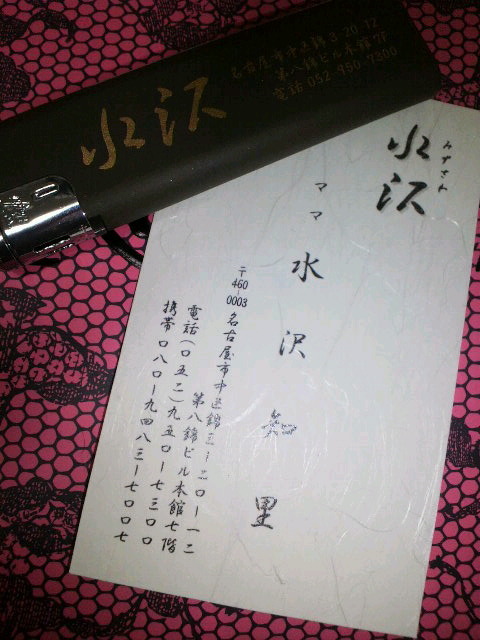 水沢
名古屋市中区錦3-20-12
第八錦ビル本館7F
電話 052-950-7300
水沢
みずさわ
ママ
水沢 里
〒460-0003 名古屋市中区錦三-二〇-一二
第八錦ビル本館七階
電話(〇五二)九五〇-七三〇〇
携帯〇八〇-九四八三-七〇〇七